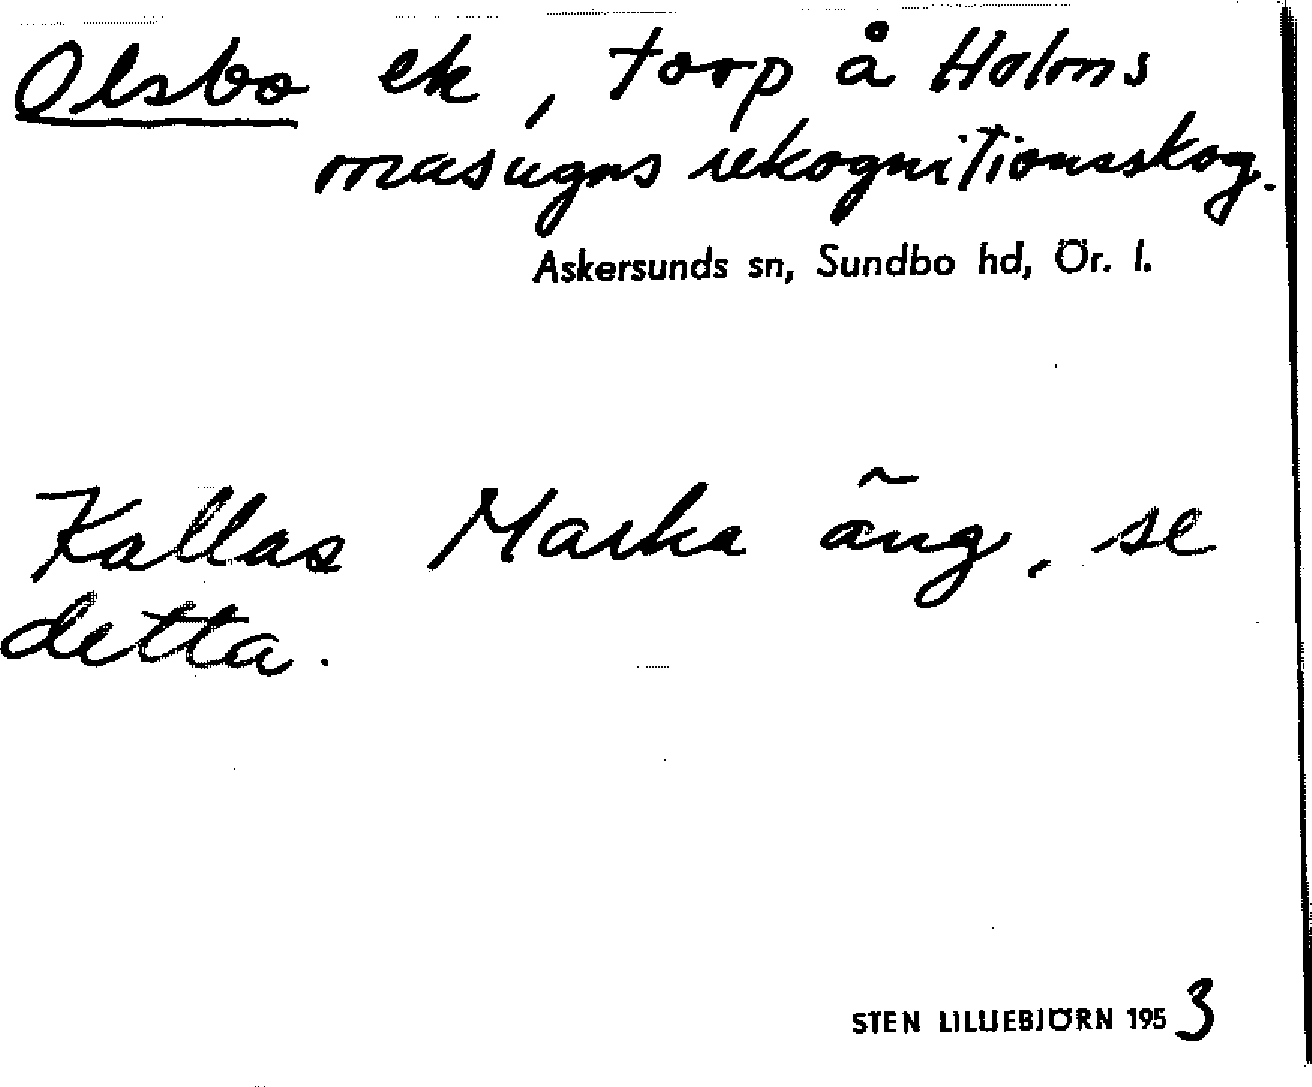 Olsbo ek, torp å Holms
masugns rekognitionsskog.
Askersunds sn, Sundbo hd, Ör. l.
Kallas Marka äng, se
detta.
STEN LILLIEBJÖRN 1953